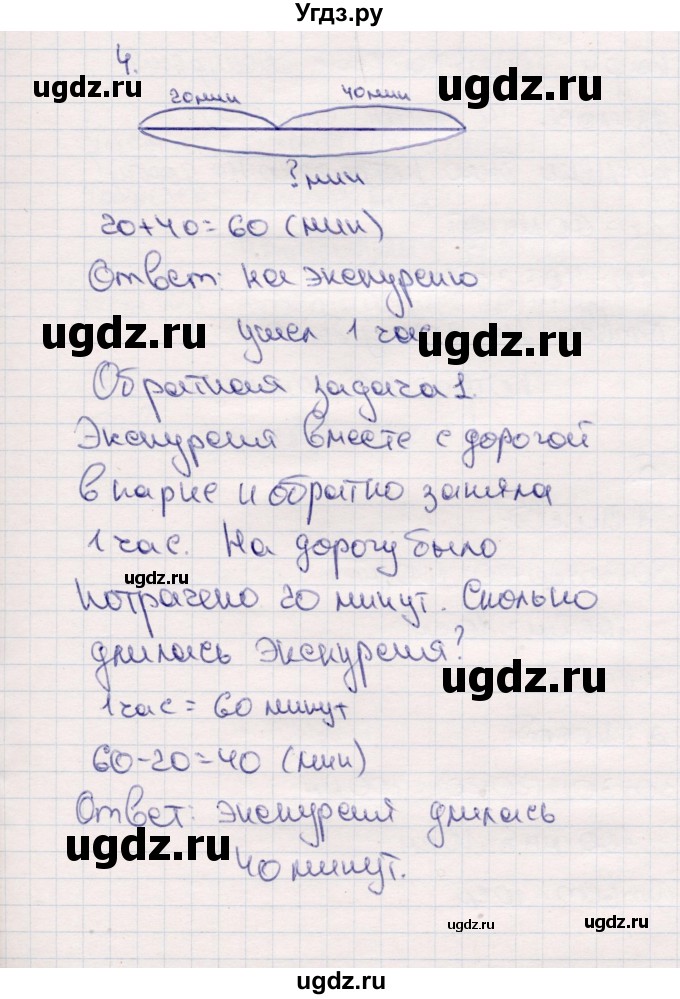 Угдз.ру
4.
ugdz.ru ugdz.ru
20 мин 40 мин
? мин
20+40=60 (мин)
Ответ: на экскурсию
ugdz.ru ушел 1 час ugdz.ru
Обратная задача 1.
Экскурсия вместе с дорогой
в парке и обратно заняла
1 час. На дорогу было
ugdz.ru
потрачено 20 минут. Сколько
длилась экскурсия?
ugdz.ru
1 час = 60 минут
60-20=40 (мин)
Ответ: экскурсия длилась
ugdz.ru
40 минут.
ugdz.ru ugdz.ru
ugdz.ru